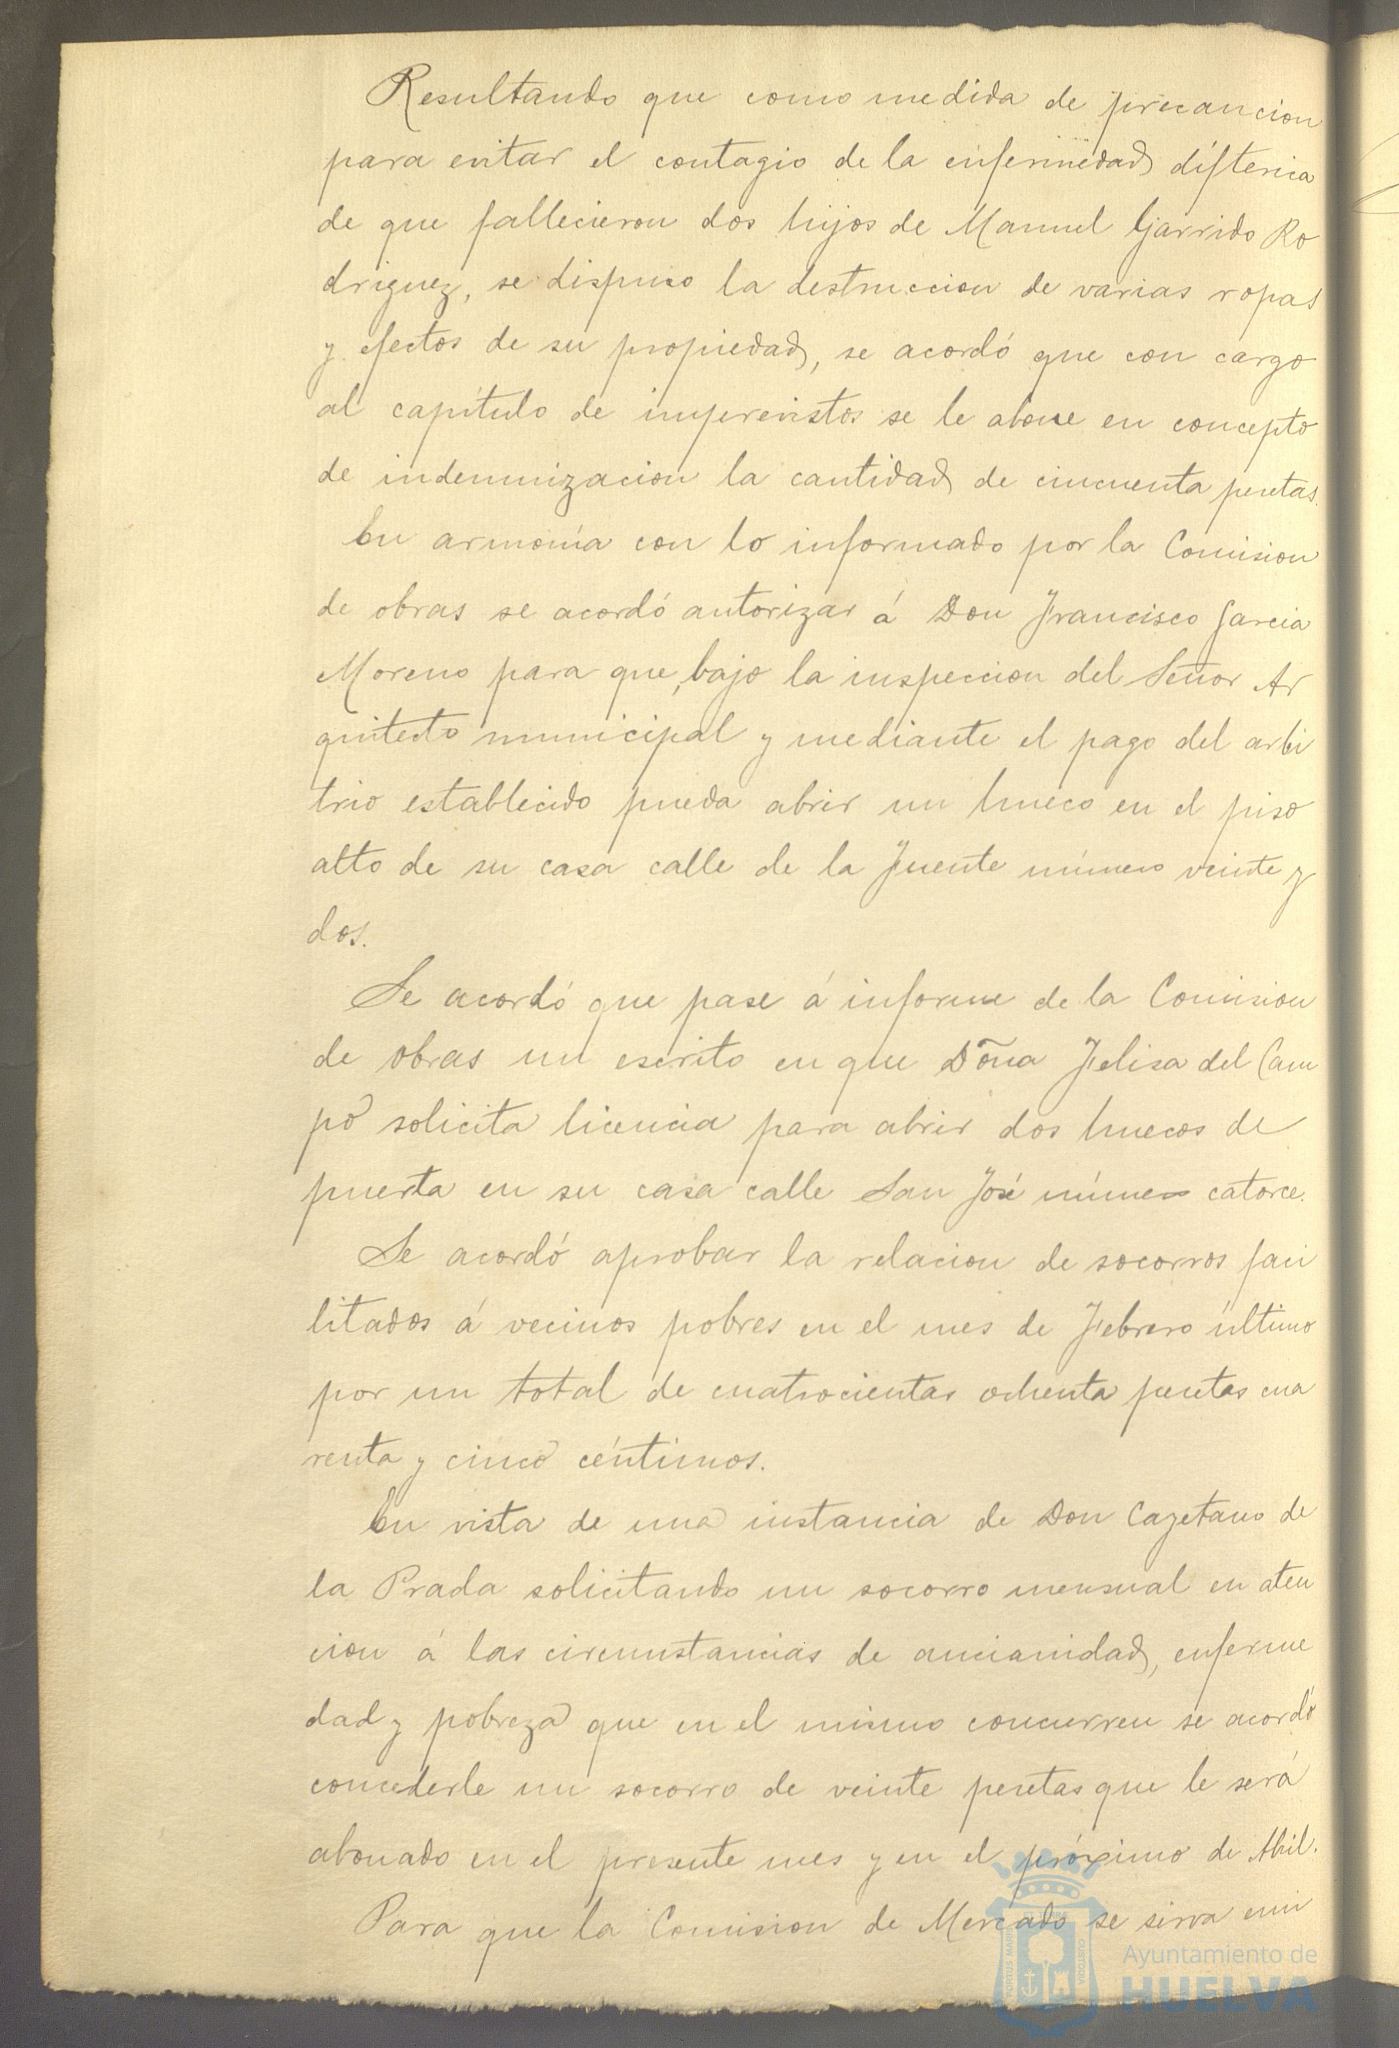 Resultando que como medida de precaucion
para evitar el contagio de la enfermedad diftérica
de que fallecieron dos hijos de Manuel Garrido Ro
driguez, se dispuso la destruccion de varias ropas
y efectos de su propiedad, se acordó que con cargo
al capítulo de imprevistos se le abone en concepto
de indemnizacion la cantidad de cincuenta pesetas.
En armonía con lo informado por la Comision
de obras se acordó autorizar á Don Francisco Garcia
Moreno para que, bajo la inspeccion del Señor Ar
quitecto municipal y mediante el pago del arbi
trio establecido pueda abrir un hueco en el piso
alto de su casa calle de la Fuente número veinte y
dos.
Se acordó que pase á informe de la Comision
de obras un escrito en que Doña Felisa del Cam
po solicita licencia para abrir dos huecos de
puerta en su casa calle San José número catorce.
Se acordó aprobar la relacion de socorros faci
litados á vecinos pobres en el mes de Febrero último
por un total de cuatrocientas ochenta pesetas cua
renta y cinco céntimos.
En vista de una instancia de Don Cayetano de
la Prada solicitando un socorro mensual en aten
cion á las circunstancias de ancianidad, enferme
dad y pobreza que en el mismo concurren se acordó
concederle un socorro de veinte pesetas que le será
abonado en el presente mes y en el próximo de Abril.
Para que la Comision de Mercado se sirva emi
Ayuntamiento de
HUELVA
PORTUS MARIS
CUSTODIA